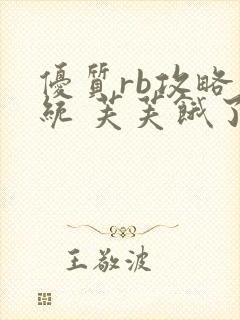 優質rb攻略
統 芙芙餓了
王敬波